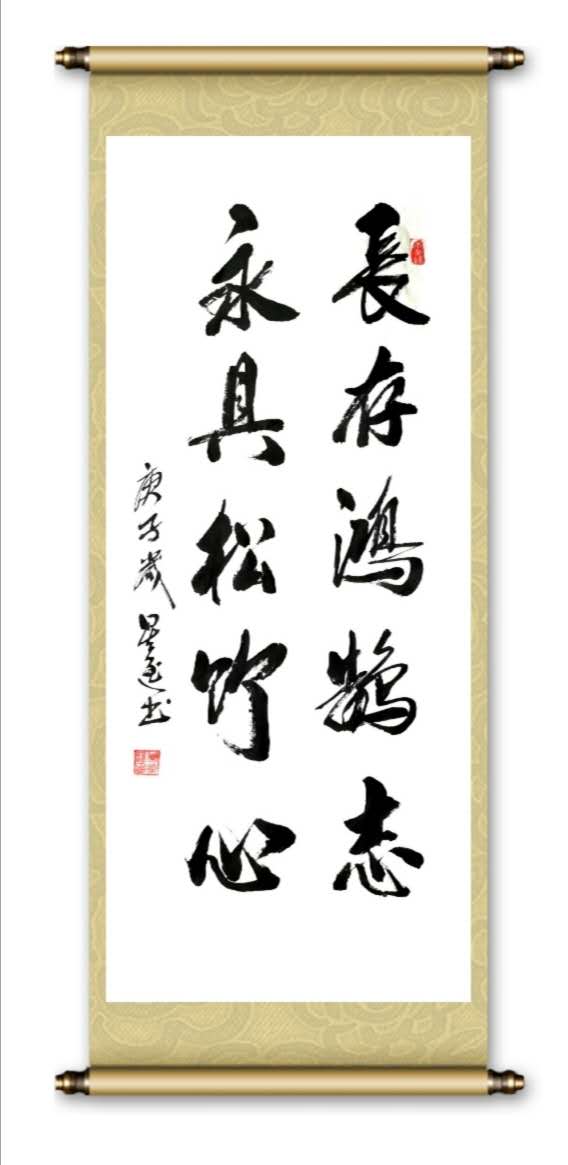 長存鴻鵠志
永具松竹心
庚子歲星達书